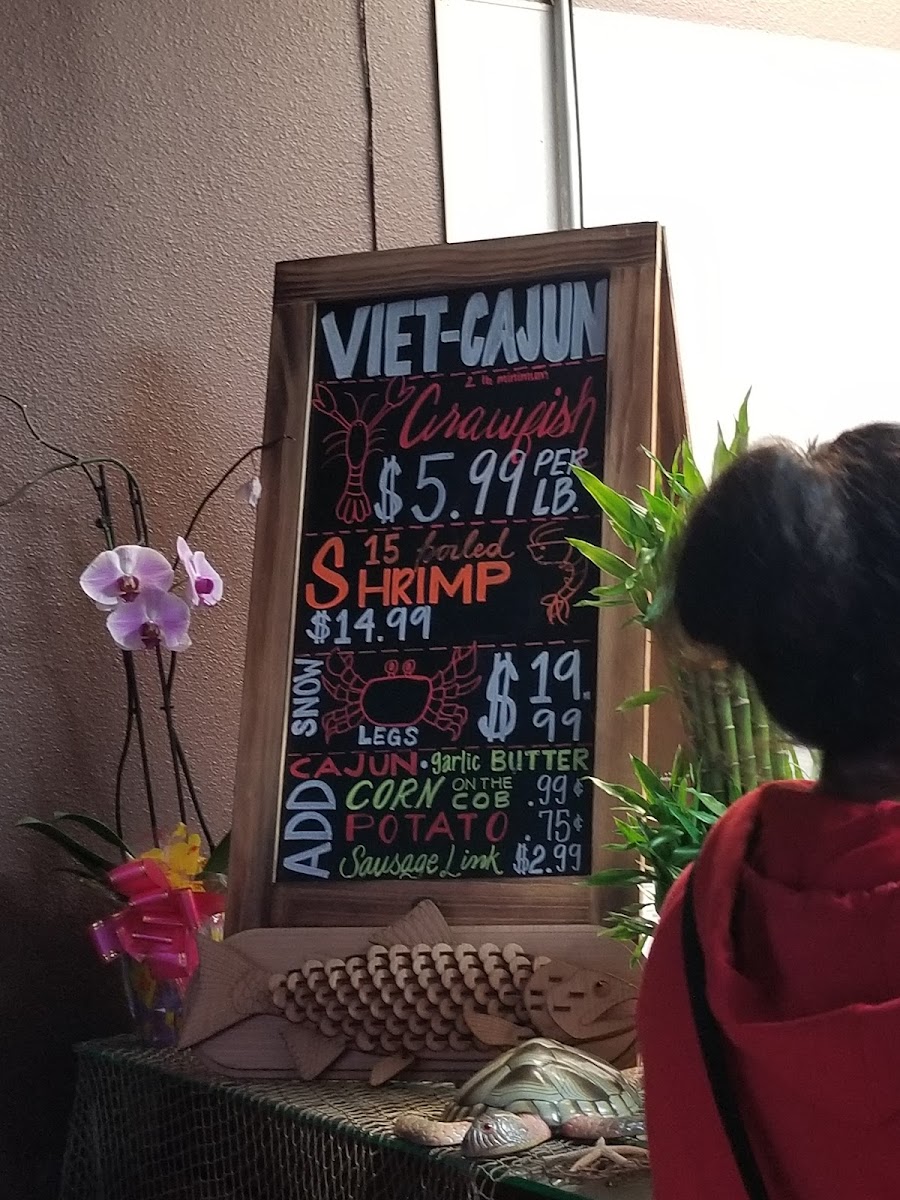 VIET-CAJUN
2 lb minimum
Crawfish
$5.99 PER LB.
15 boiled
SHRIMP
$14.99
SNOW
LEGS
$19.99
CAJUN • garlic BUTTER
ADD
CORN ON THE COB .99¢
POTATO .75¢
Sausage Link $2.99